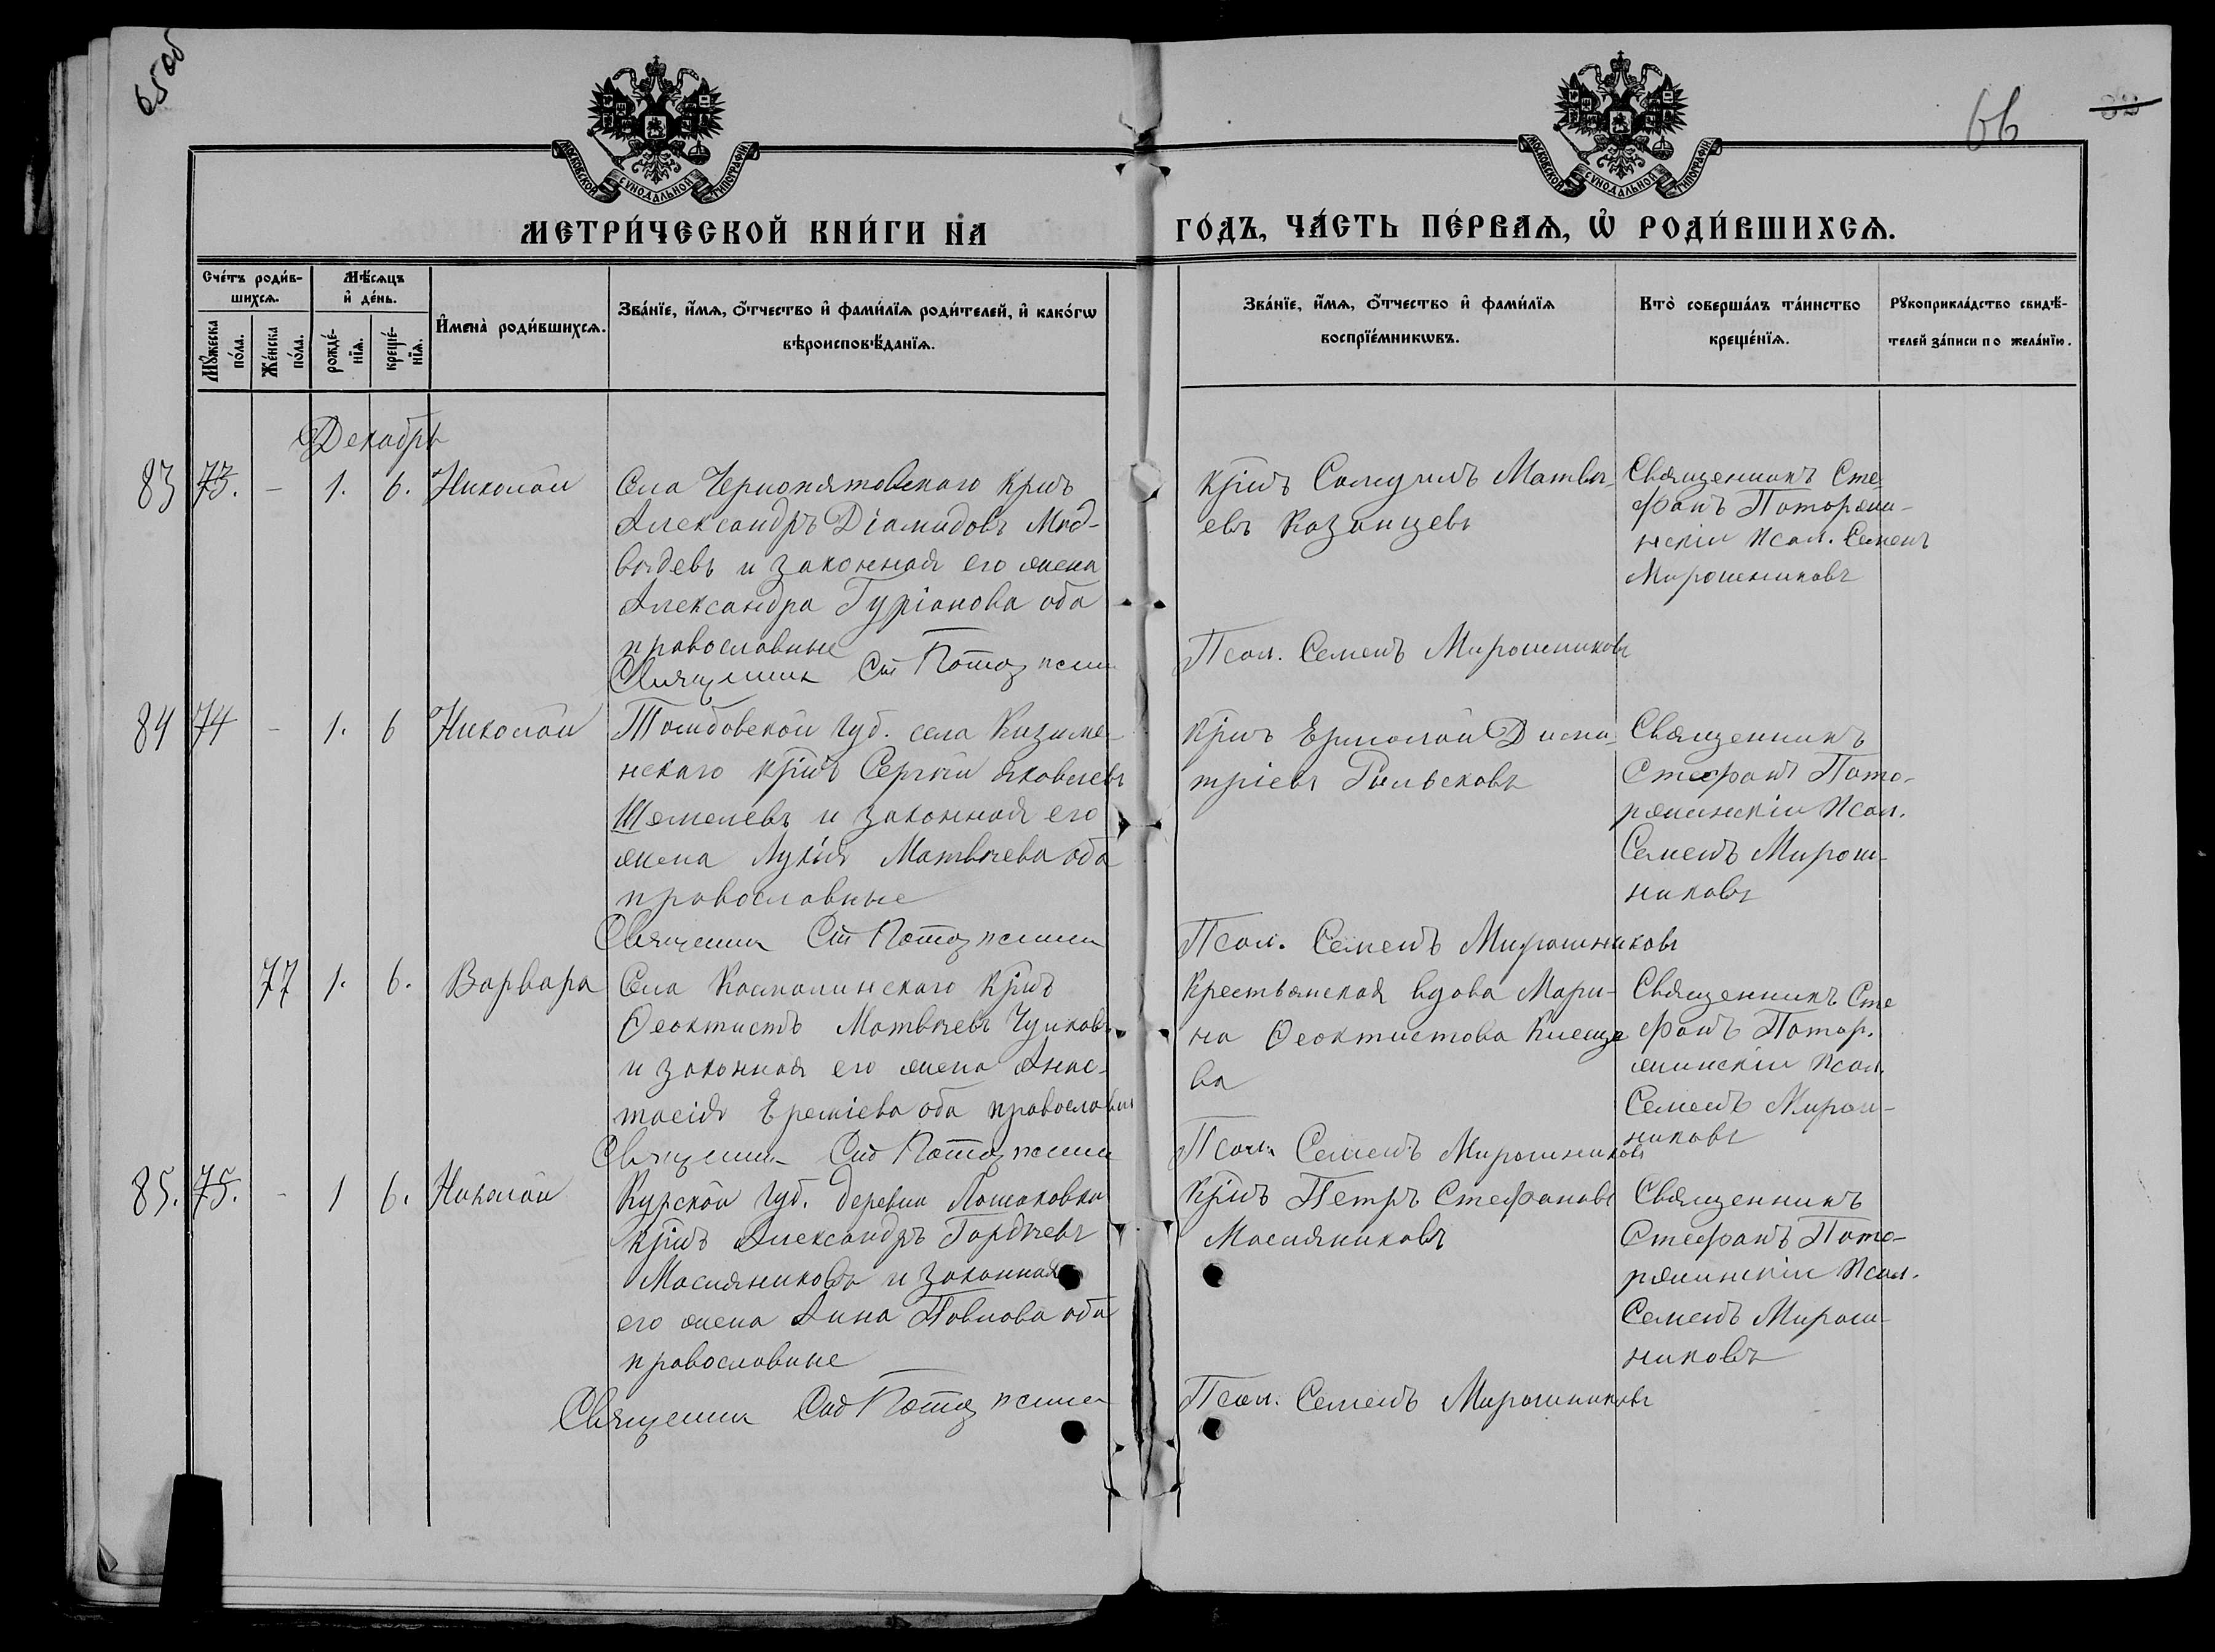 65 об
66
МОСКОВСКОЙ СѴНОДАЛЬНОЙ ТИПОГРАФІИ
МОСКОВСКОЙ СѴНОДАЛЬНОЙ ТИПОГРАФІИ
МЕТРИ́ЧЕСКОЙ КНИ́ГИ НА
ГО́ДЪ, ЧА́СТЬ ПЕ́РВАѦ, Ѡ҆ РОДИ́ВШИХСѦ.
Сче́тъ роди́в-
шихсѧ.
Мѣ́сѧцъ
и҆ де́нь.
Мꙋ́жеска
по́ла.
Же́нска
по́ла.
рожде́-
нїѧ.
креще́-
нїѧ.
И҆мена̀ роди́вшихсѧ.
Зва́нїе, и҆́мѧ, ѻ҆́тчество и҆ фами́лїѧ роди́телей, и҆ како́гѡ
вѣроисповѣ́данїѧ.
Зва́нїе, и҆́мѧ, ѻ҆́тчество и҆ фами́лїѧ
воспрїе́мникѡвъ.
Кто̀ соверша́лъ та́инство
креще́нїѧ.
Рꙋкоприкла́дство свидѣ́-
телей за́писи по жела́нїю.
Декабрь
83 73. - 1. 6. Николай
Села Чернопятовскаго крнъ
Александръ Діамидовъ Мед-
вѣдевъ и законная его жена
Александра Гуріанова оба
православные
Священник Ст
крнъ Самуилъ Матвѣ-
евъ Казанцевъ
Псал. Семенъ Мирошниковъ
Священникъ Сте-
фанъ Поторжи-
нскій Псал. Семенъ
Мирошниковъ
84 74 - 1. 6 Николай
Тамбовской губ. села
нскаго крнъ Сергѣй Яковлевъ
Шемелевъ и законная его
жена Лукія Матвѣева оба
православные
Священник Ст
крнъ Ермолай Дими-
тріевъ Рыльсковъ
Псал. Семенъ Мирошниковъ
Священникъ
Стефанъ Пото-
ржинскій Псал.
Семенъ Мирош-
никовъ
77 1. 6. Варвара
Села Касмалинскаго крнъ
Ѳеоктистъ Матвѣевъ Чупковъ
и законная его жена Анас-
тасія Ереміева оба православн
Священник
Крестьянская вдова Мари-
на Ѳеоктистова Клеще
ва
Псал. Семенъ Мирошниковъ
Священникъ Сте
фанъ Потор-
жинскій Псал.
Семенъ Мирош-
никовъ
85. 75. - 1 6. Николай
Курской губ. деревни Лошаковки
крнъ Александръ Гордѣевъ
Масляниковъ и законная
его жена Анна Павлова оба
православные
Священник
крнъ Петръ Стефановъ
Масляниковъ
Псал. Семенъ Мирошниковъ
Священникъ
Стефанъ Пото-
ржинскій Псал.
Семенъ Мирош-
никовъ